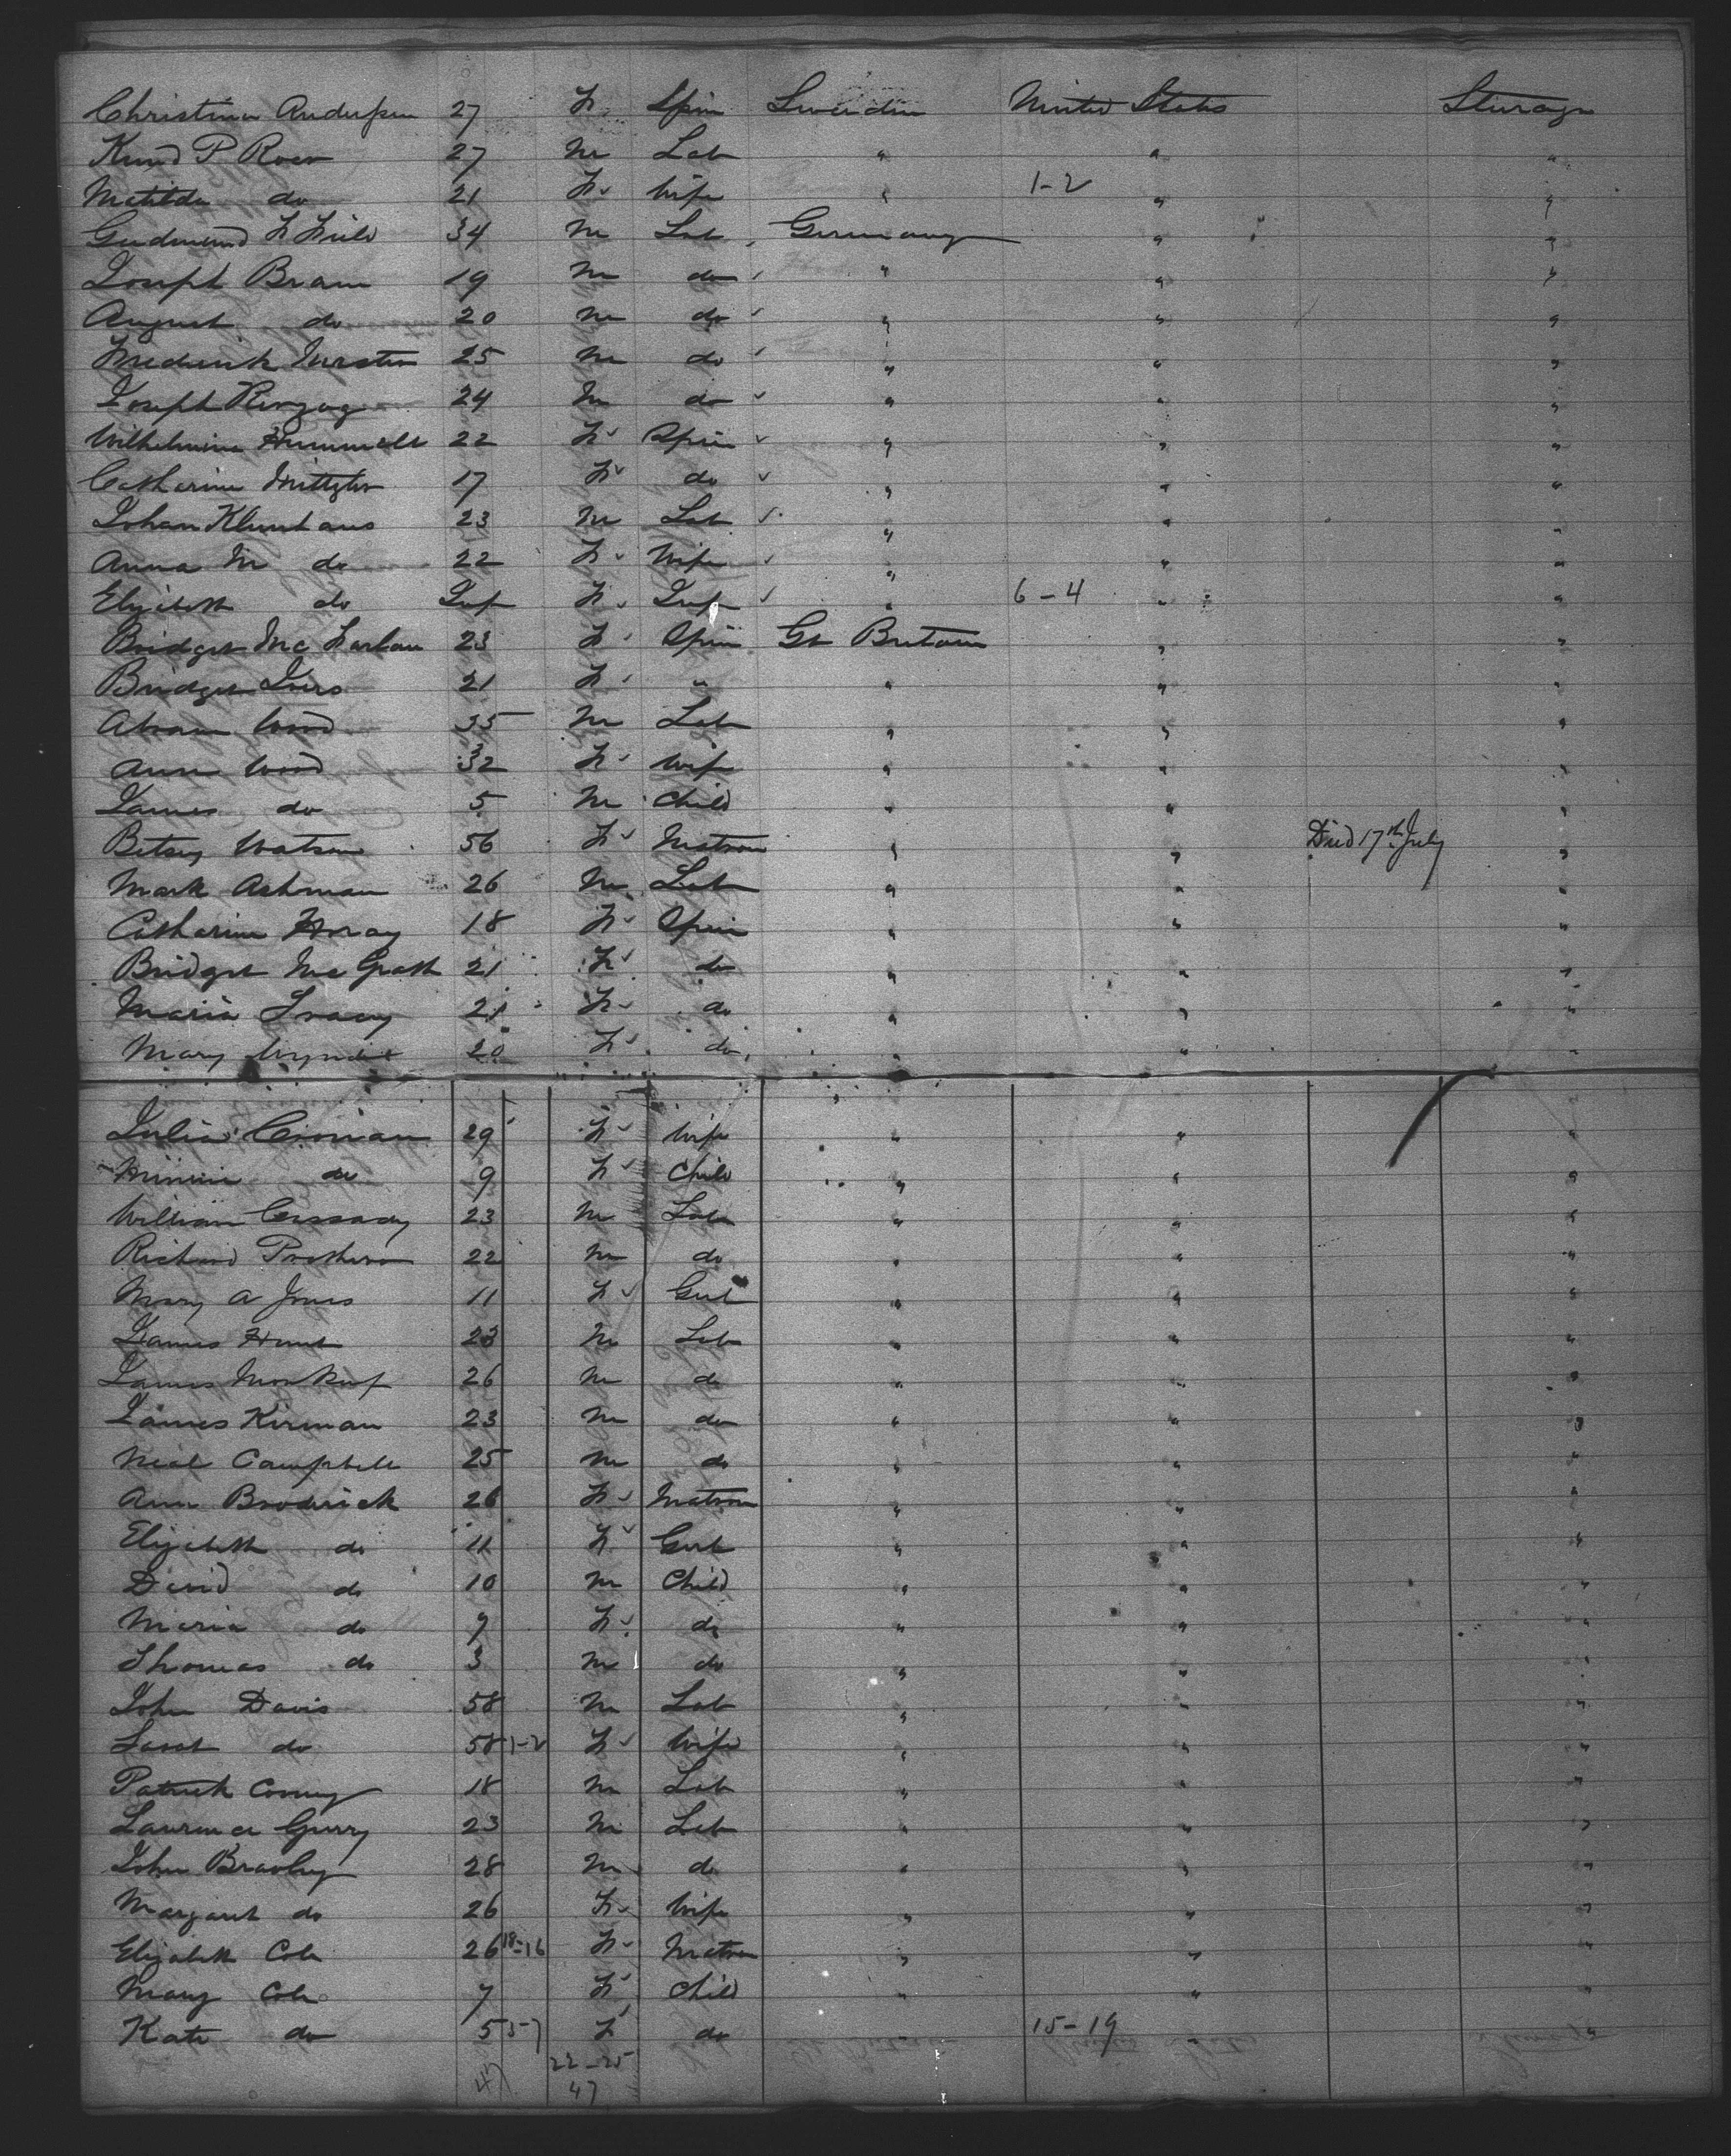 Christina Anderson 27 F. Spin Sweeden United States Steurage
Knud P Roen 27 M Lab " " "
Matilda do 21 F. Wife " 1-2 " "
Gudmund F 34 M Lab Germany " "
Joseph Braun 19 M do " " "
August do 20 M do " " "
Frederick 25 M do " " "
Joseph Herzog 24 M do " " "
Wilhelmina 22 F Spin " " "
Catharine 17 F do " " "
Johan Klunhaus 23 M Lab " " "
Anna M do 22 F Wife " " "
Elizibeth do Inf F. Inf " 6-4 " "
Bridget Mc Farlan 23 F Spin Gt Britain " "
Bridget 21 F " " " "
Abram Wood 35 M Lab " " "
Ann Wood 32 F Wife " " "
James do 5 M Child " " "
Betsey Watson 56 F Matron " " Died 17th July "
Mark Ashman 26 M Lab " " "
Catharine 18 F Spin " " "
Bridget Mc Grath 21 F do " " "
Maria Tracey 21 F do " " "
Mary 20 F do " " "
Julia 29 F Wife " " "
Minnie do 9 F Child " " "
William Cassady 23 M Lab " " "
Richard Prothero 22 M do " " "
Mary A Jones 11 F Girl " " "
James Hunt 23 M Lab " " "
James 26 M do " " "
James Kirman 23 M do " " "
Neal Campbell 25 M do " " "
Ann Broderick 26 F Matron " " "
Elizibeth do 11 F Girl " " "
David do 10 M Child " " "
Maria do 7 F. do " " "
Thomas do 3 M do " " "
John Davis 58 M Lab " " "
Sarah do 58 1-2 F Wife " " "
Patrick 18 M Lab " " "
Laurence Gurry 23 M Lab " " "
John Bradley 28 M do " " "
Margaret do 26 F Wife " " "
Elizabeth Cole 26 18-16 F Matron " " "
Mary Cole 7 F Child " " "
Kate do 5 3-7 F do " 15-19 " "
47 22-25
47